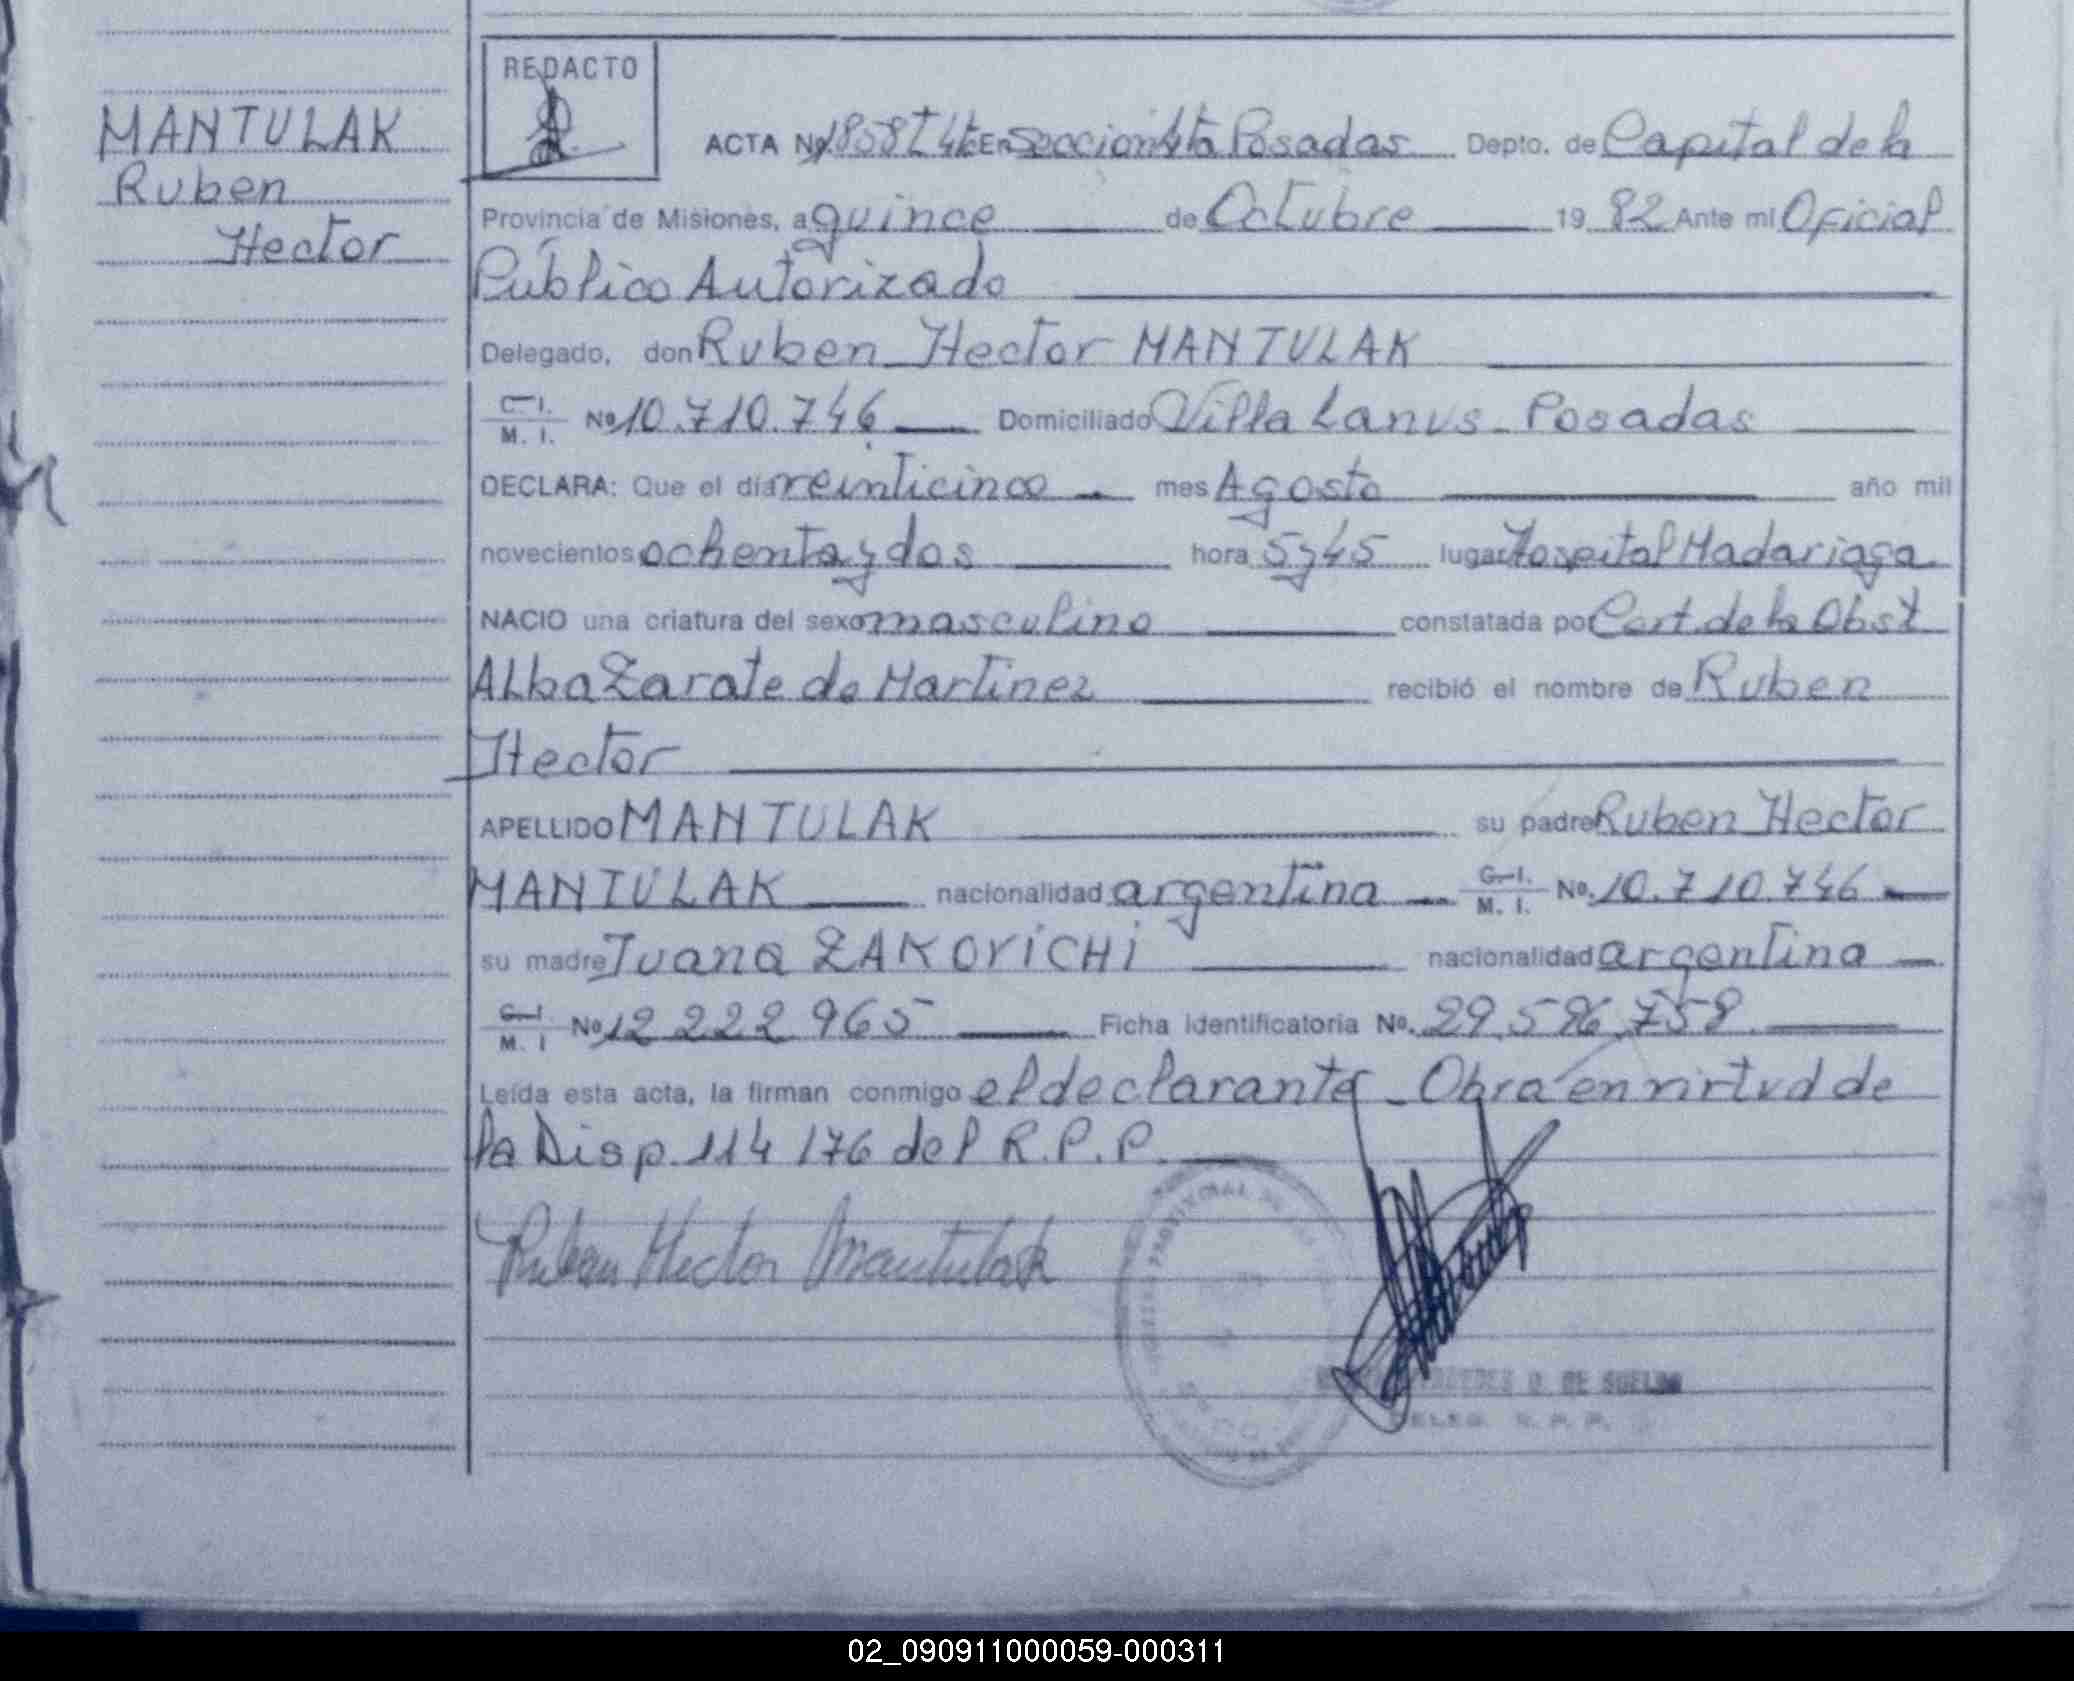 MANTULAK
Ruben
Hector
REDACTO
ACTA Nº 1858 T 4to En Seccion 1ra Posadas Depto. de Capital de la
Provincia de Misiones, a quince de Octubre 19 82 Ante mí Oficial
Público Autorizado
Delegado, don Ruben Hector MANTULAK
C. I.
M. I. Nº 10.710.746 Domiciliado Villa Lanus - Posadas
DECLARA: Que el día veinticinco mes Agosto año mil
novecientos ochenta y dos hora 5y45 lugar Hospital Madariaga
NACIO una criatura del sexo masculino constatada por Cert. de la Obst
Alba Zarate de Martinez recibió el nombre de Ruben
Hector
APELLIDO MANTULAK su padre Ruben Hector
MANTULAK nacionalidad argentina C. I.
M. I. Nº. 10.710.746
su madre Juana ZAKOVICHI nacionalidad argentina
C. I.
M. I Nº 12 222 965 Ficha identificatoria Nº. 29.596.758
Leída esta acta, la firman conmigo el declarante - Obra en virtud de
la Disp. 114/76 del R.P.P.
Ruben Hector Mantulak
DE SUELDO
DELEG. R. P. P.
02_090911000059-000311